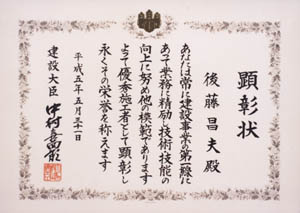 顕彰状
後藤昌夫殿
あなたは常に建設事業の第一線に
あって業務に精励し技術技能の
向上に努め他の模範であります
よって優秀施工者として顕彰し
永くその栄誉を称えます
平成五年五月三十一日
建設大臣 中村喜四郎